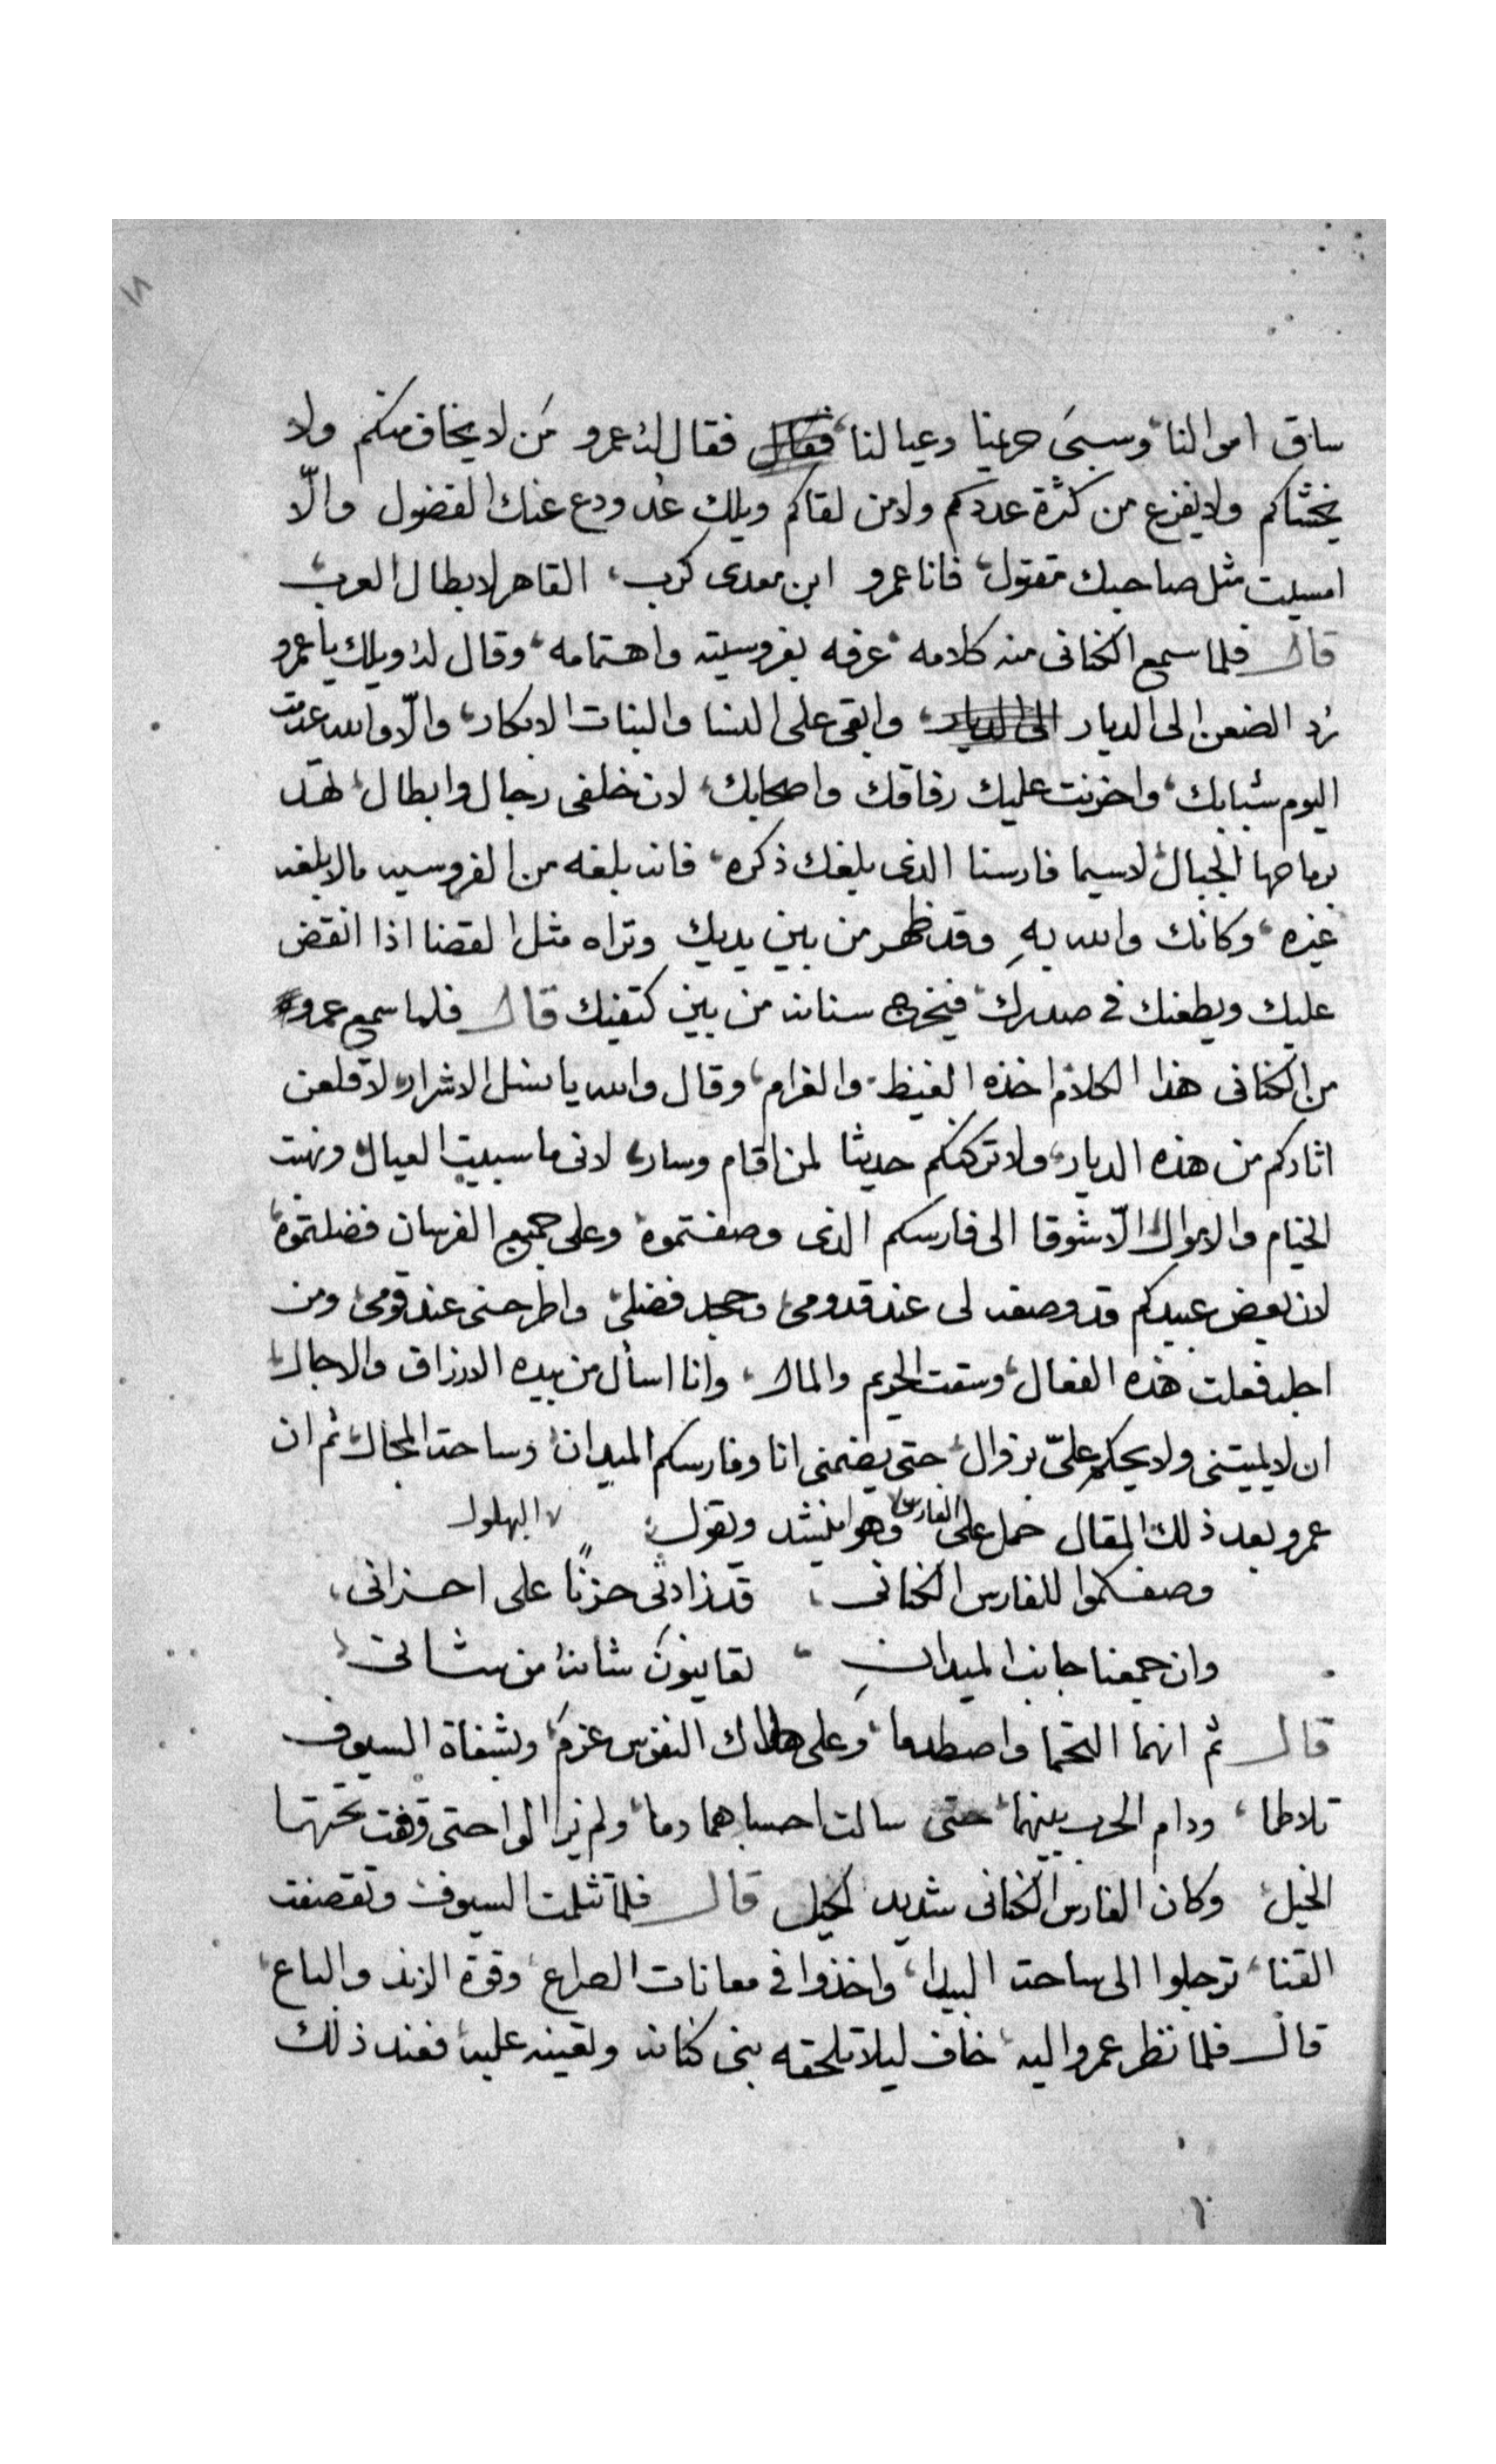 ١٨
ساق اموالنا، وسبىَ حريمنا وعيالنا، فقال فقال لهُ عمرو مَن لا يخاف منكم ولا
يخشاكم ولا يفزع من كثرة عددكم ولا من لقاكم ويلك عُد ودع عنك الفضول والّا
امسيت مثل صاحبك مقتول، فانا عمرو ابن معدى كرب، القاهر لابطال العرب
قال فلما سمع الكنانى منه كلامه، عرفه بفروسيته واهتمامه، وقال له ويلك يا عمرو
رُد الضعن الى الديار الى الديار، وابقى على النسا والبنات الابكار، والّا والله عدمت
اليوم شبابك، واحزنت عليك رفاقك واصحابك، لان خلفى رجال وابطال، تهد
برماحها الجبال، لاسيما فارسنا الذى بلغك ذكره، فانه بلغه من الفروسيه ما لا بلغه
غيره، وكانك والله بهِ وقد ظهر من بين يديك وتراه مثل القضا اذا انقض
عليك ويطعنك فى صدرك، فيخرج سنانه من بين كتفيك قال فلما سمع عمرو
من الكنانى هذا الكلام اخذه الغيظ والغرام، وقال والله يا نسل الاشرار، لاقلعن
اثاركم من هذه الديار، ولاتركنكم حديثا لمن اقام وسار، لانى ما سبيت العيال ونهبت
الخيام والاموال، الّا شوقا الى فارسكم الذى وصفتموه، وعلى جميع الفرسان فضلتموه
لان بعض عبيدكم قد وصفه لى عند قدومى، وجحد فضلى، واطرحنى عند قومى، ومن
اجله فعلت هذه الفعال، وسقت الحريم والمال، وانا اسأل من بيده الارزاق والاجال
ان لا يميتنى ولا يحكم علىّ بزوال، حتى يضمنى انا وفارسكم الميدان، وساحة المجال، ثم ان
عمرو بعد ذلك المقال حمل على الفارس وهو ينشد ويقول البهلول
وصفكموا للفارس الكنانى، قد زادنى حزنًا على احزانى،
وان جمعنا جانب الميدانِ، شانهُ من شانى
قال ثم انهما التحما واصطدما، وعلى هلاك النفوس عزم، وبشفاة السيوف
تلاطما، ودام الحرب بينهما، حتى سالت دما، ولم يزالوا حتى وقفت تحتهما
الخيل، وكان الفارس الكنانى شديد الحيل قال فلما تثلمت السيوف وتقصفت
القنا، ترجلوا الى ساحة البيدا، واخذوا فى معانات الصراع، وقوة الزند والباع،
قال فلما نظر عمرو اليه، خاف ليلا تلحقه بنى كنانه عليه، فعند ذلك